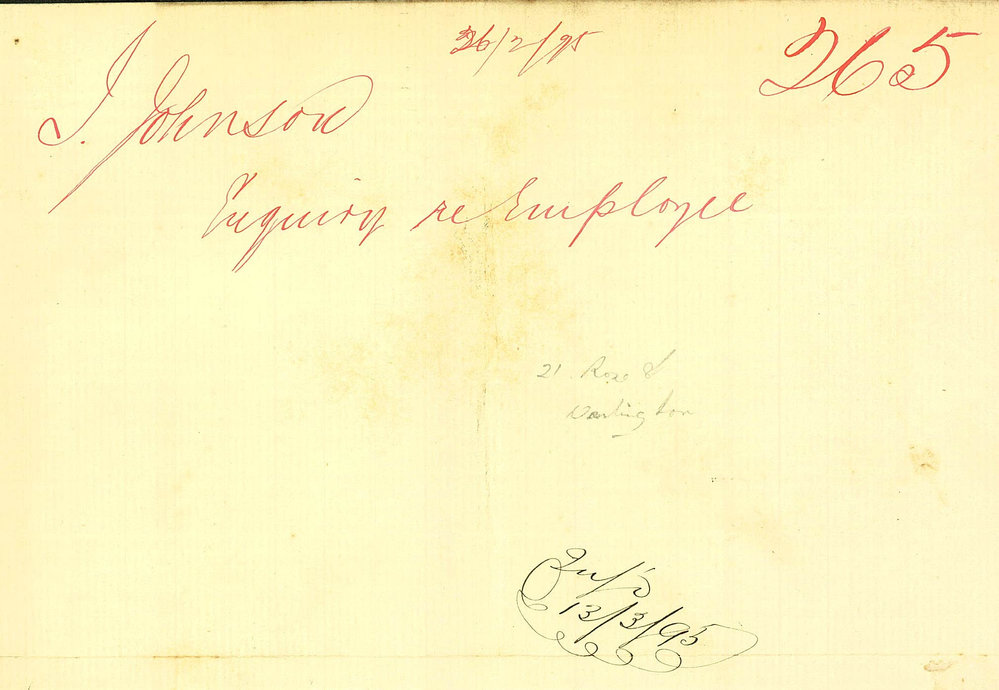 26/2/95
265
J. Johnson
Enquiry re Employee
21 Rose St
Darlington
13/3/95